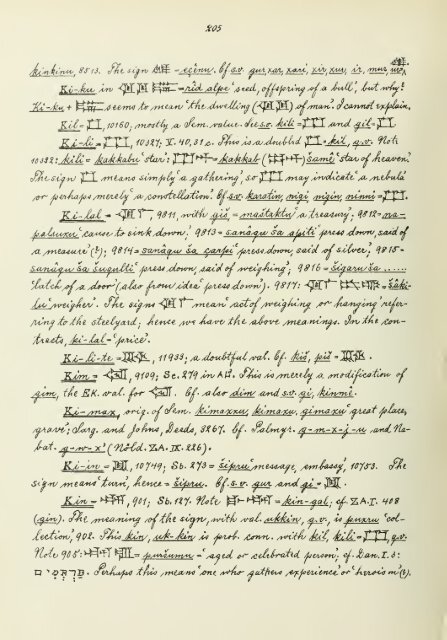 205
kinkinu, 8513. The sign = eçênu. Cf. s.v. gur, xar, xari, xir, xur, ir, mur, ur,
Ki-ku in = rid alpe 'seed, offspring of a bull', but why?
Ki-ku + seems to mean 'the dwelling ( ) of man'. I cannot explain.
Kil = , 10160, mostly a Sem. value. See s.v. kili = and gil =
Ki-li = , 10327, V. 40, 31 c. This is a doubled = kil, q.v. Note
10322: kili = kakkabu 'star': = kakkab ( ) šamê 'star of heaven.'
The sign means simply 'a gathering', so may indicate 'a nebula'
or perhaps merely 'a constellation.' Cf. s.v. karatin, nigi, nigin, ninni =
Ki-lal = , 9811, with giš, = maštaktu 'a treasury'; 9812 = na-
palsuxu 'cause to sink down.' 9813 = sanâqu ša apiti 'press down, said of
a measure' (?); 9814 = sanâqu ša çarpi 'press down, said of silver'; 9815 -
sanâqu ša šuqulti 'press down, said of weighing'; 9816 = šigaru ša ......
'latch of a door' (also from idea 'press down'). 9817: = šaki-
lu 'weigher'. The signs mean 'act of weighing or hanging' refer-
ring to the steelyard, hence we have the above meanings. In the con-
tracts, ki-lal = 'price'.
Ki-li-te = , 11933; a doubtful val. Cf. kiš, piš =
Kim = , 9109; Sc. 279 in This is merely a modification of
gim, the EK. val. for Cf. also dim and s.v. gi, kinmi.
Ki-max, orig. of Sem. kimaxxu, kimaxu, gimaxu 'great place,
grave'; Sarg. and Johns, Deeds, 3267. Cf. Palmyr. g-m-x-j-u and Na-
bat. g-w-x' (Nöld. ZA. IX. 226).
Ki-in = , 10749; Sb. 273 = šipru 'message, embassy', 10753. The
sign means 'turn', hence = šipru. Cf. s.v. gur and gi =
Kin = , 901; Sb. 127. Note = kin-gal; cf. ZA. I. 408
(gin). The meaning of the sign, with val. ukkin, q.v., is puxru 'col-
lection', 902. This kin, uk-kin is prob. conn. with kil, kili = , q.v.
Note 905: = puršumu = 'aged or celebrated person'; cf. Dan. I. 3:
Perhaps this means 'one who gathers experience' or 'heroism' (?).